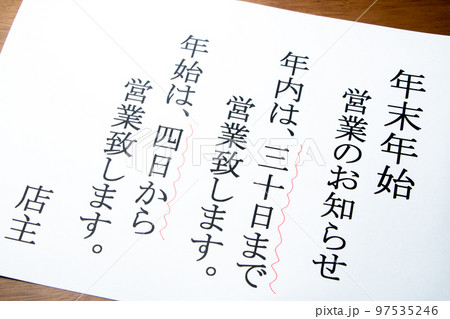 年末年始
営業のお知らせ
年内は、三十日まで
営業致します。
年始は、四日から
営業致します。
店主
PIXTA
97535246